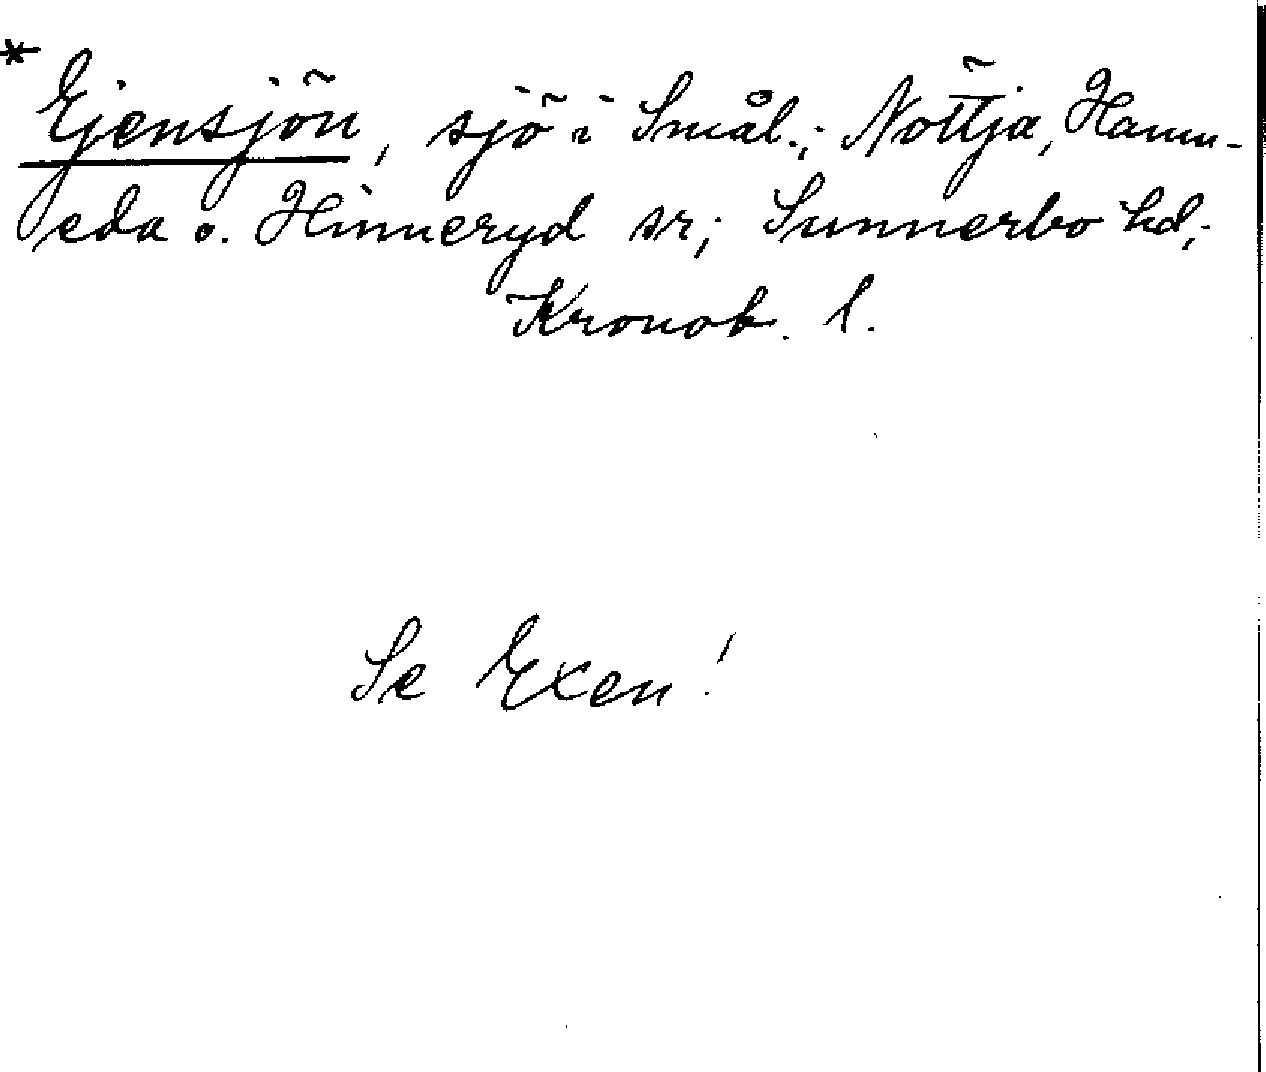 * Ejensjön, sjö i Smål.; Nöttja, Hamn-
eda o. Hinneryd sr; Sunnerbo hd;
Kronob. l.
Se Exen!